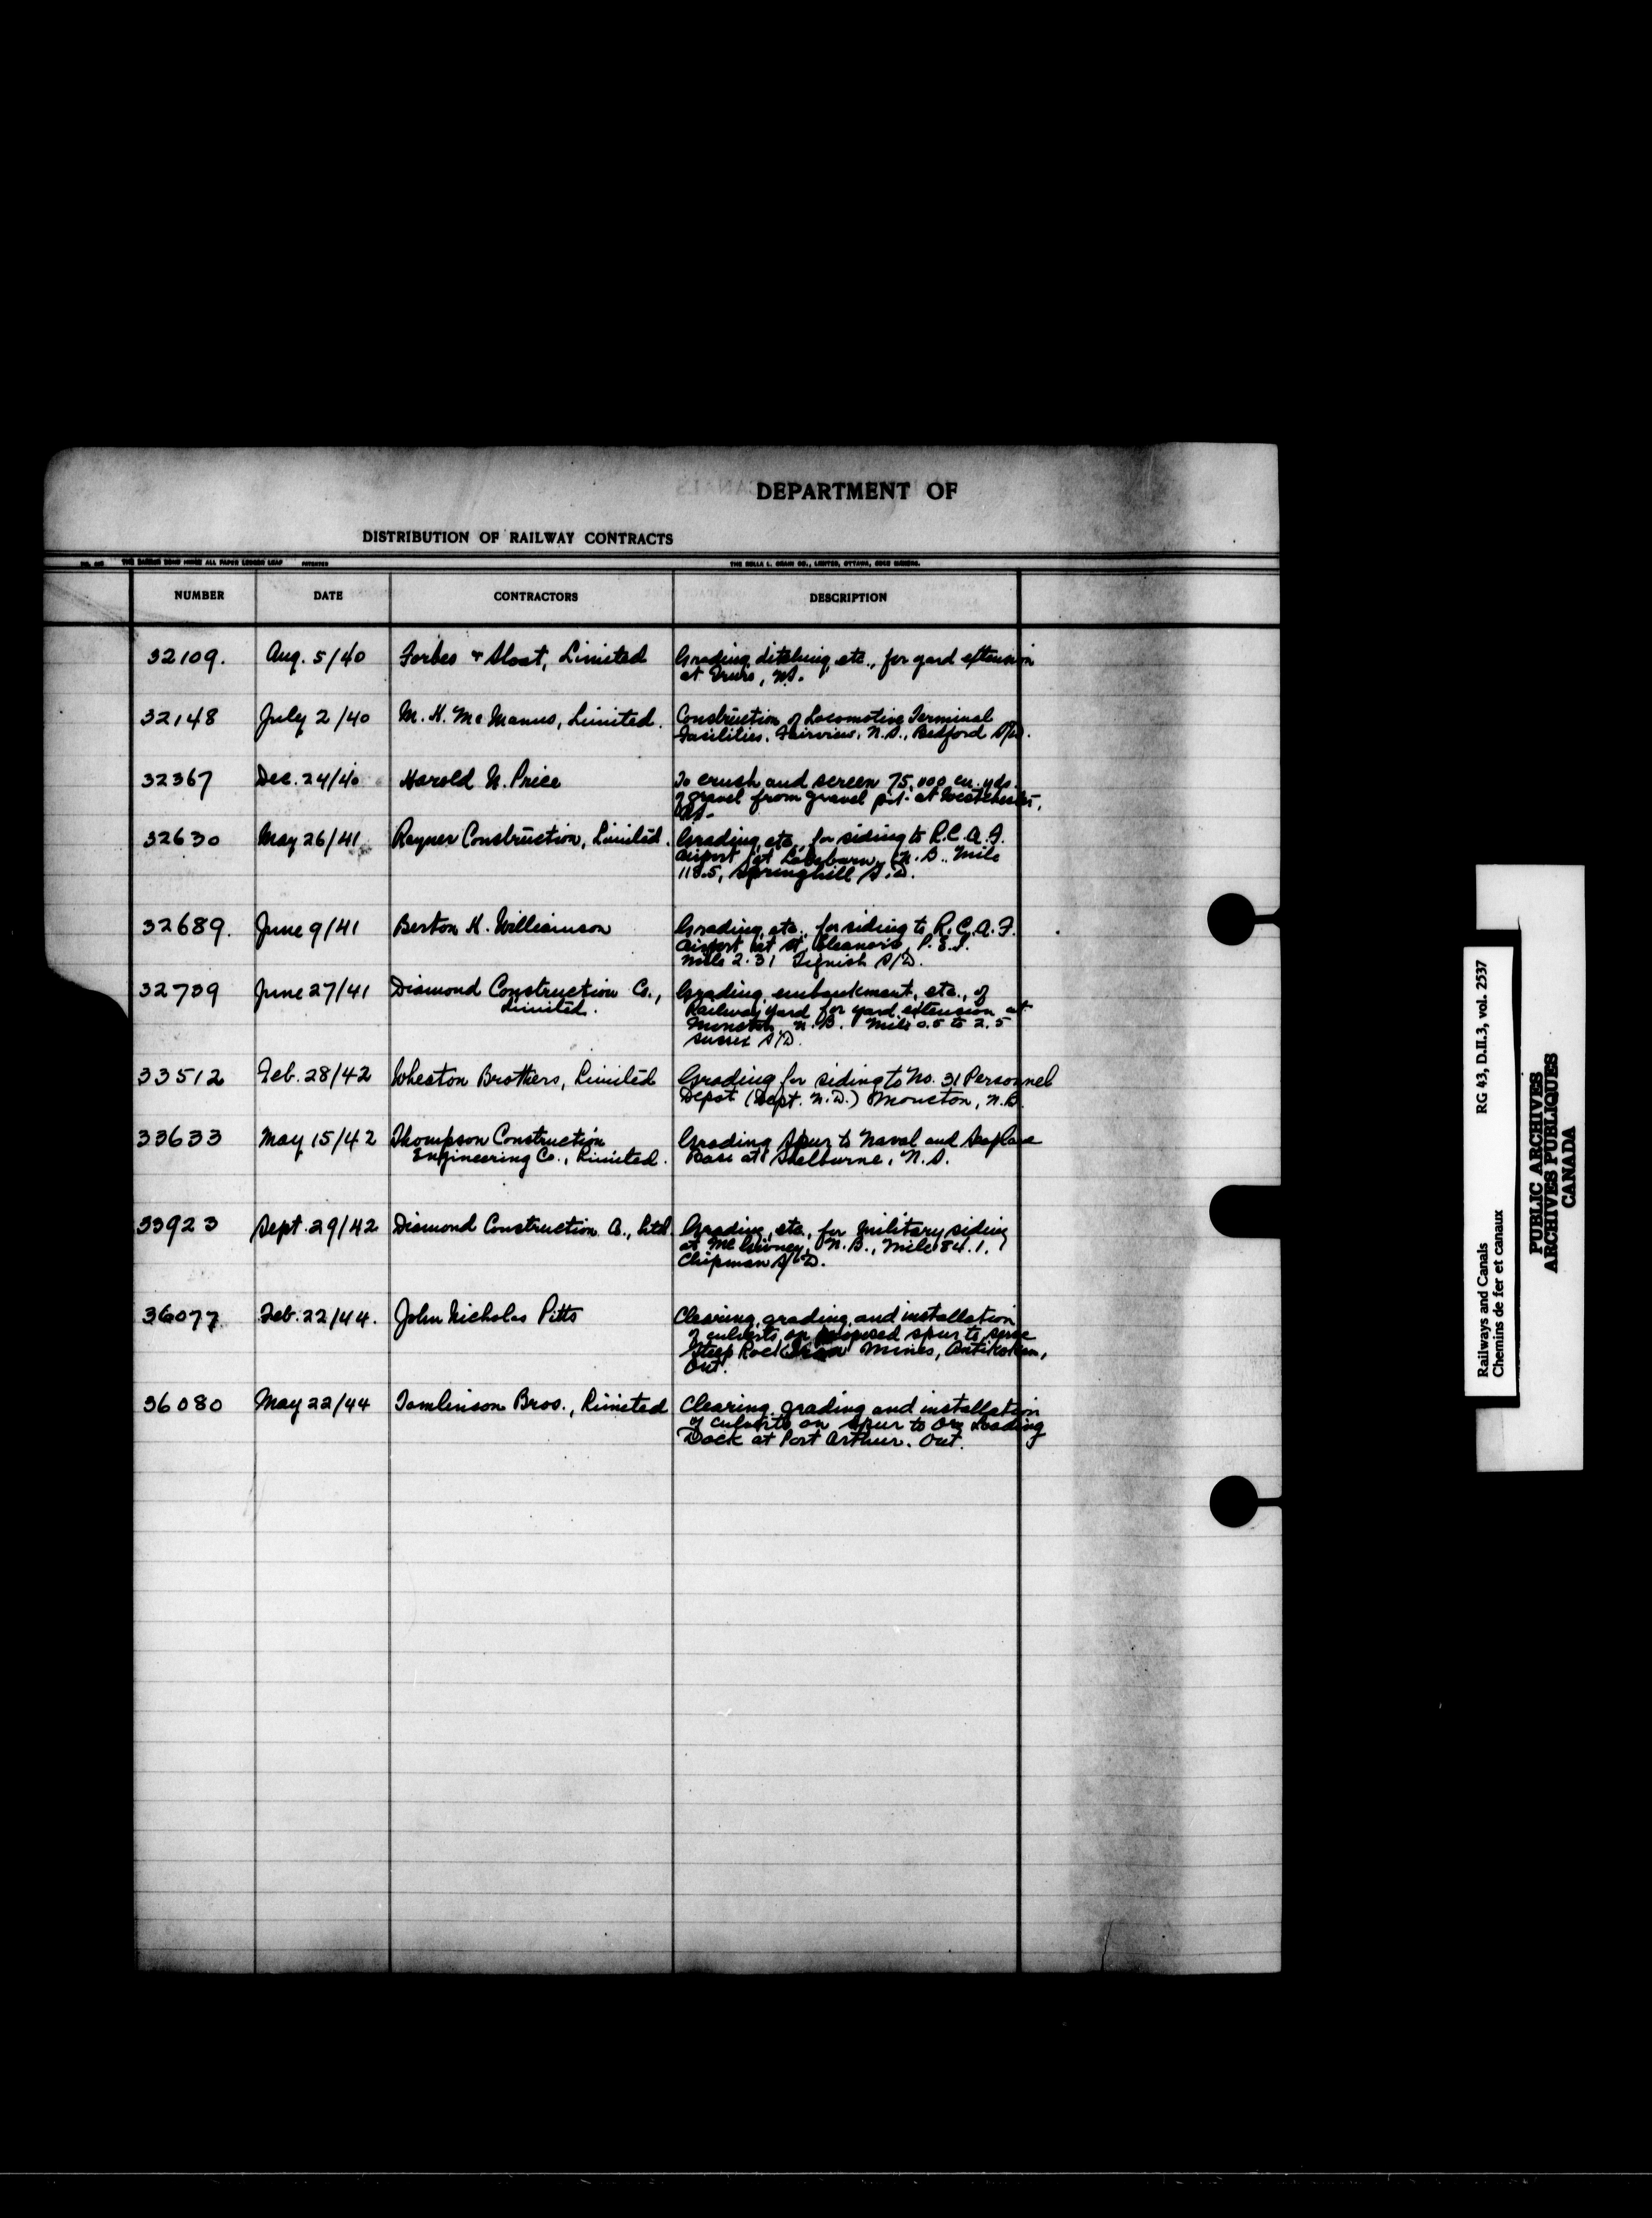 DEPARTMENT OF
DISTRIBUTION OF RAILWAY CONTRACTS
NUMBER DATE CONTRACTORS DESCRIPTION
32109. Aug. 5/40 Forbes & Sloat, Limited Grading, ditching, etc., for yard extension
at Truro, N.S.
32148 July 2/40 M. H. McManus, Limited. Construction of Locomotive Terminal
Facilities, Fairview, N.S., Bedford S/D.
32367 Dec. 24/40 Harold N. Price To crush and screen 75,000 cu. yds.
of gravel from gravel pit at Westchester,
N.S.
32630 May 26/41 Rayner Construction, Limited. Grading, etc., for siding to R.C.A.F.
Airport at N.B., Mile
118.5, Springhill S.D.
32689. June 9/41 Berton H. Williamson Grading, etc., for siding to R.C.A.F.
Airport at St. Eleanors, P.E.I.
Mile 2.31 Tignish S/D.
32739 June 27/41 Diamond Construction Co., Grading, embankment, etc., of
Limited. Railway Yard for yard extension at
Moncton, N.B. Mile 0.5 to 2.5
Sussex S/D.
33512 Feb. 28/42 Wheaton Brothers, Limited Grading for siding to No. 31 Personnel
Depot (Dept. N.D.) Moncton, N.B.
33633 May 15/42 Thompson Construction Grading Spur to Naval and Seaplane
Engineering Co., Limited. Base at Shelburne, N.S.
33923 Sept. 29/42 Diamond Construction Co., Ltd Grading, etc., for military siding
at McGivney, N.B., Mile 84.1,
Chipman S/D.
36077 Feb. 22/44. John Nicholas Pitts Clearing, grading, and installation
of culverts on proposed spur to serve
Steep Rock Iron Mines, Antikokan,
Ont.
36080 May 22/44 Tomlinson Bros., Limited Clearing, grading and installation
of culverts on spur to Ore Loading
Dock at Port Arthur, Ont.
Railways and Canals RG 43, D.II.3, vol. 2537
Chemins de fer et canaux
PUBLIC ARCHIVES
ARCHIVES PUBLIQUES
CANADA